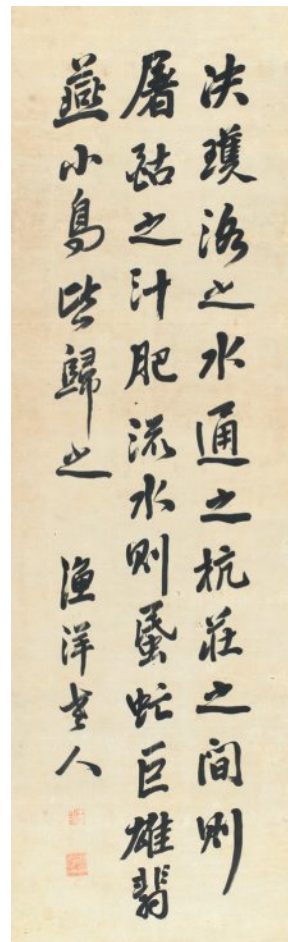 決瓁洛之水通之杭莊之間則
屠酤之汁肥流水則蟁虻巨雄翡
燕小鳥皆歸之 漁洋老人